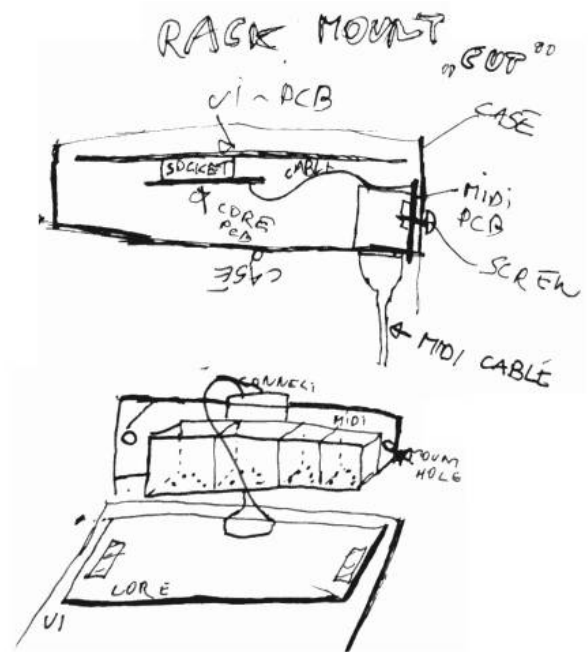 RACK MOUNT
„CUT”
UI - PCB
CASE
SOCKET
CABLE
MIDI
PCB
CORE
PCB
CASE
SCREW
MIDI CABLE
CONNECT
MIDI
MOUNT
HOLE
CORE
UI